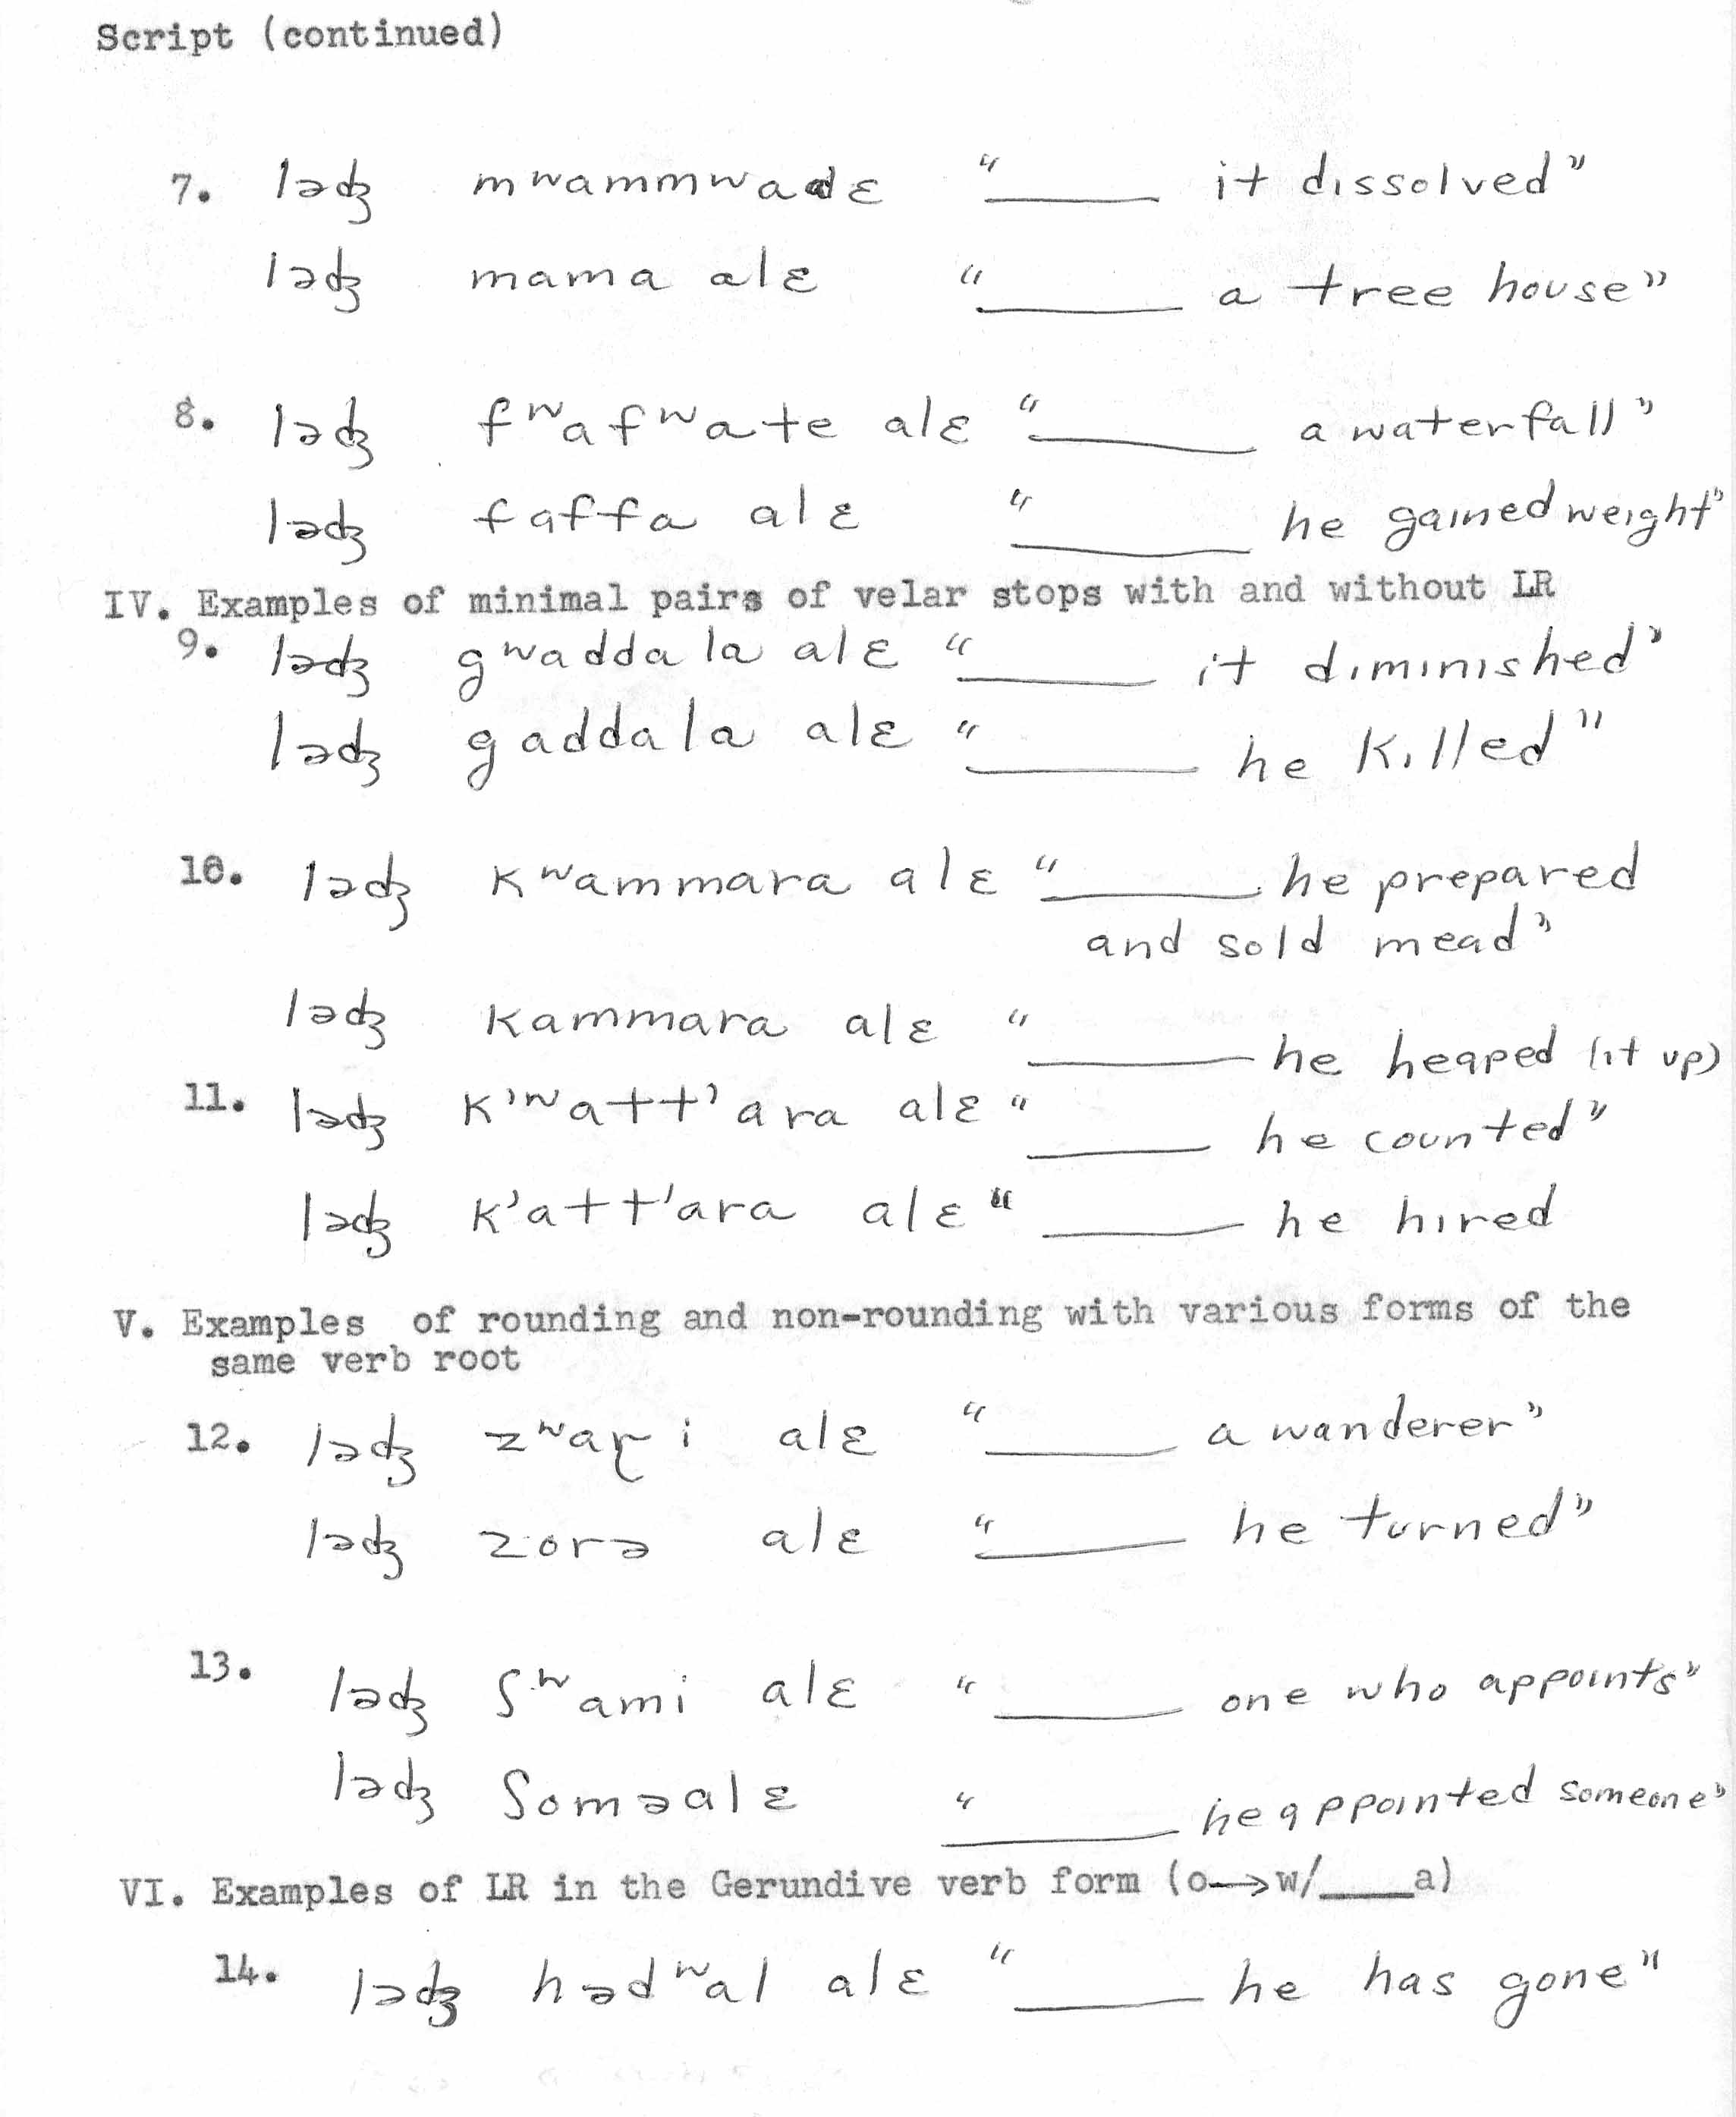 Script (continued)
7. ləʤ mʷammʷadɛ “_____ it dissolved”
ləʤ mama alɛ “_____ a tree house”
8. ləʤ fʷafʷate alɛ “_____ a waterfall”
ləʤ faffa alɛ “_____ he gained weight”
IV. Examples of minimal pairs of velar stops with and without LR
9. ləʤ gʷaddala alɛ “_____ it diminished”
ləʤ gaddala alɛ “_____ he killed”
10. ləʤ kʷammara alɛ “_____ he prepared
and sold mead”
ləʤ kammara alɛ “_____ he heaped (it up)
11. ləʤ k'ʷatt'ara alɛ “_____ he counted”
ləʤ k'att'ara alɛ “_____ he hired
V. Examples of rounding and non-rounding with various forms of the
same verb root
12. ləʤ zʷaɽi alɛ “_____ a wanderer”
ləʤ zorə alɛ “_____ he turned”
13. ləʤ ʃʷami alɛ “_____ one who appoints”
ləʤ ʃoməalɛ “_____ he appointed someone”
VI. Examples of LR in the Gerundive verb form (o→w/____a)
14. ləʤ hədʷal alɛ “_____ he has gone”